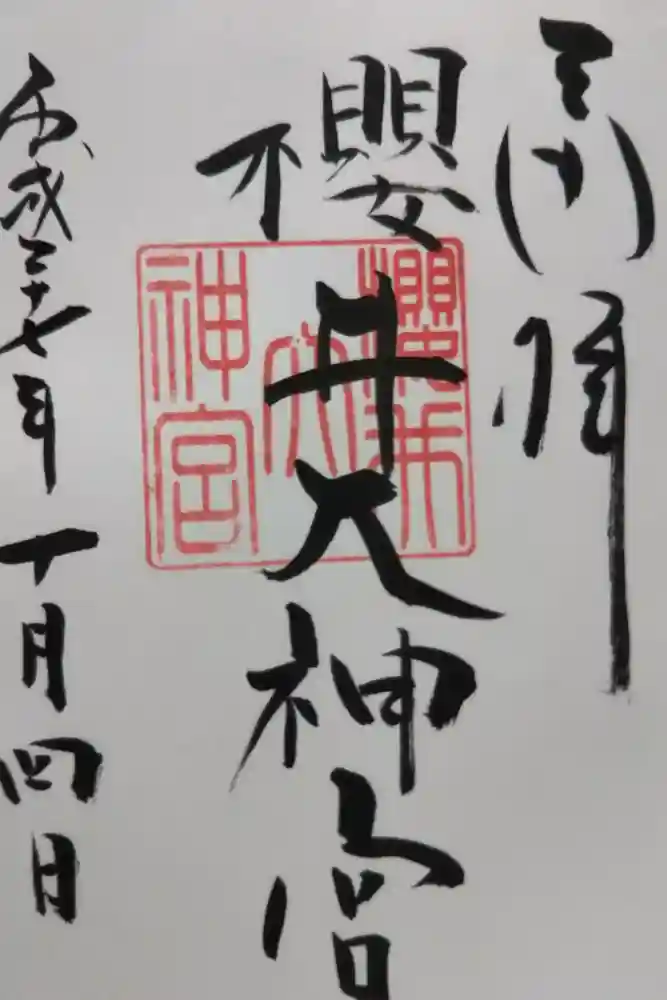 奉拝
櫻井大神宮
櫻井
大
神宮
平成二十七年十月四日